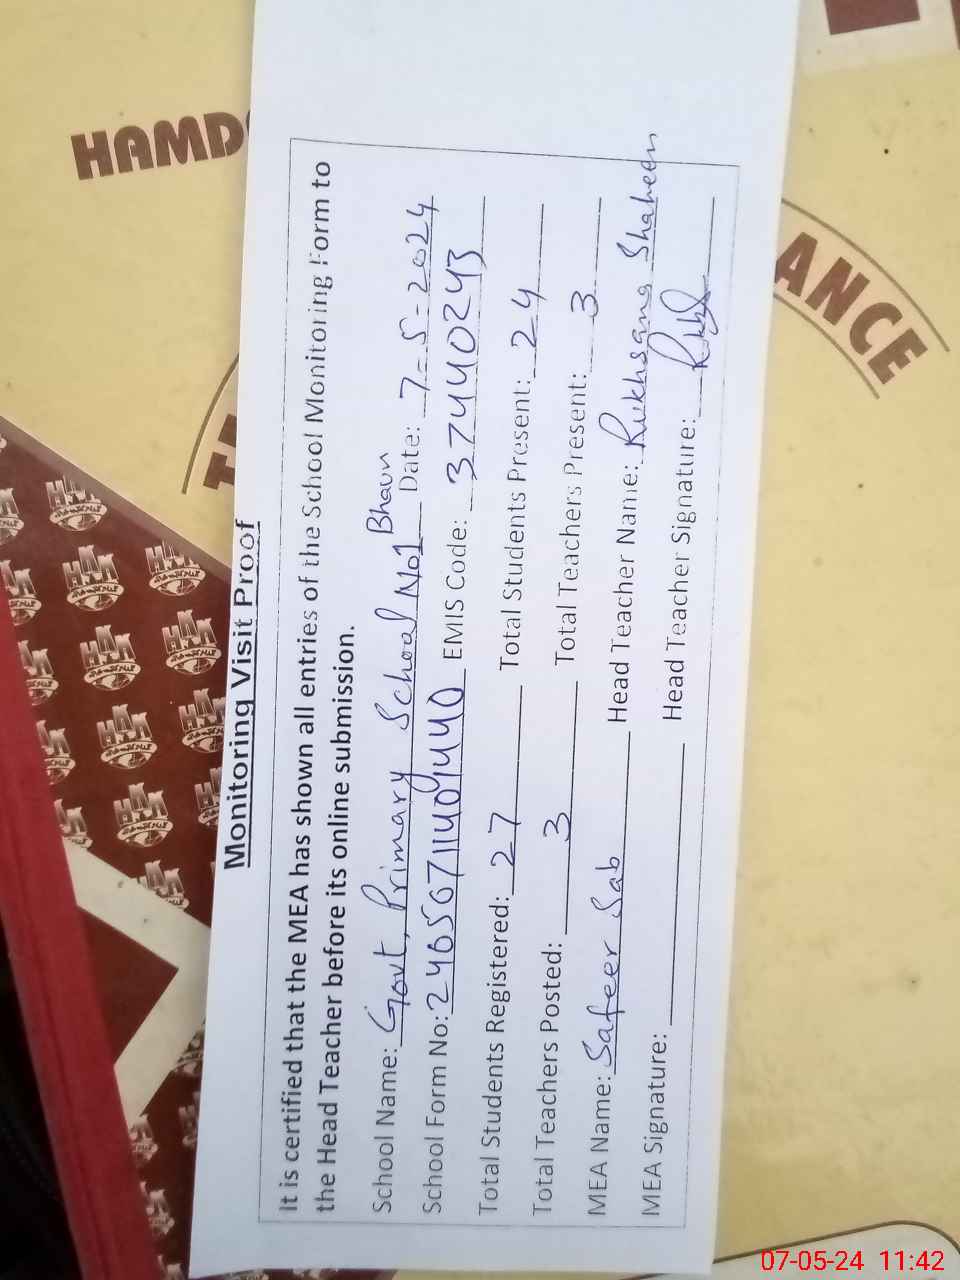 Monitoring Visit Proof
It is certified that the MEA has shown all entries of the School Monitoring Form to
the Head Teacher before its online submission.
School Name: Govt, Primary School No1 Bhaun Date: 7-5-2024
School Form No: EMIS Code: 37440243
Total Students Registered: 27 Total Students Present: 24
Total Teachers Posted: 3 Total Teachers Present: 3
MEA Name: Safeer Sab Head Teacher Name: Rukhsana Shaheen
MEA Signature: Head Teacher Signature:
HAMD
ANCE
07-05-24 11:42